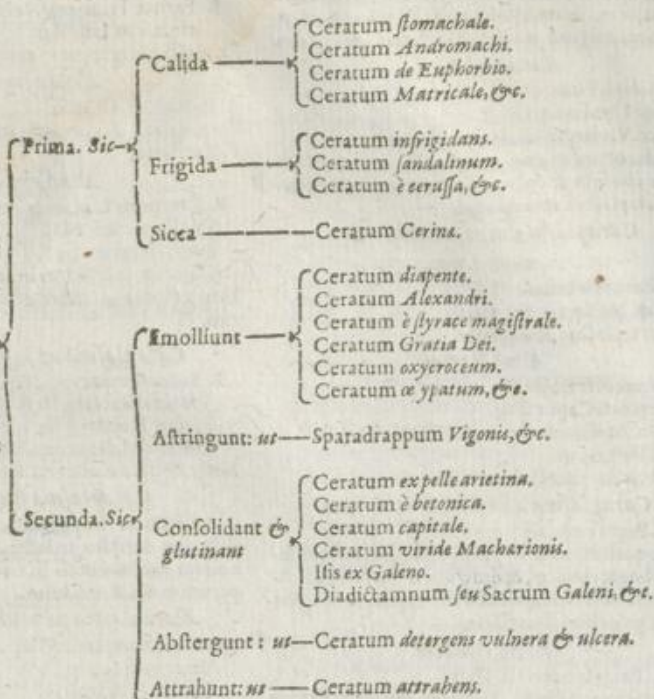 Prima. Sic
Calida
Ceratum ſtomachale.
Ceratum Andromachi.
Ceratum de Euphorbio.
Ceratum Matricale, &c.
Frigida
Ceratum infrigidans.
Ceratum ſandalinum.
Ceratum è ceruſſa, &c.
Sicca
Ceratum Cerina.
Secunda. Sic
Emolliunt
Ceratum diapente.
Ceratum Alexandri.
Ceratum è ſtyrace magiſtrale.
Ceratum Gratia Dei.
Ceratum oxycroceum.
Ceratum œ ypatum, &c.
Aſtringunt: ut
Sparadrappum Vigonis, &c.
Conſolidant &
glutinant
Ceratum ex pelle arietina.
Ceratum è betonica.
Ceratum capitale.
Ceratum viride Macharionis.
Iſis ex Galeno.
Diadictamnum ſeu Sacrum Galeni, &c.
Abſtergunt: ut
Ceratum detergens vulnera & ulcera.
Attrahunt: ut
Ceratum attrahens.